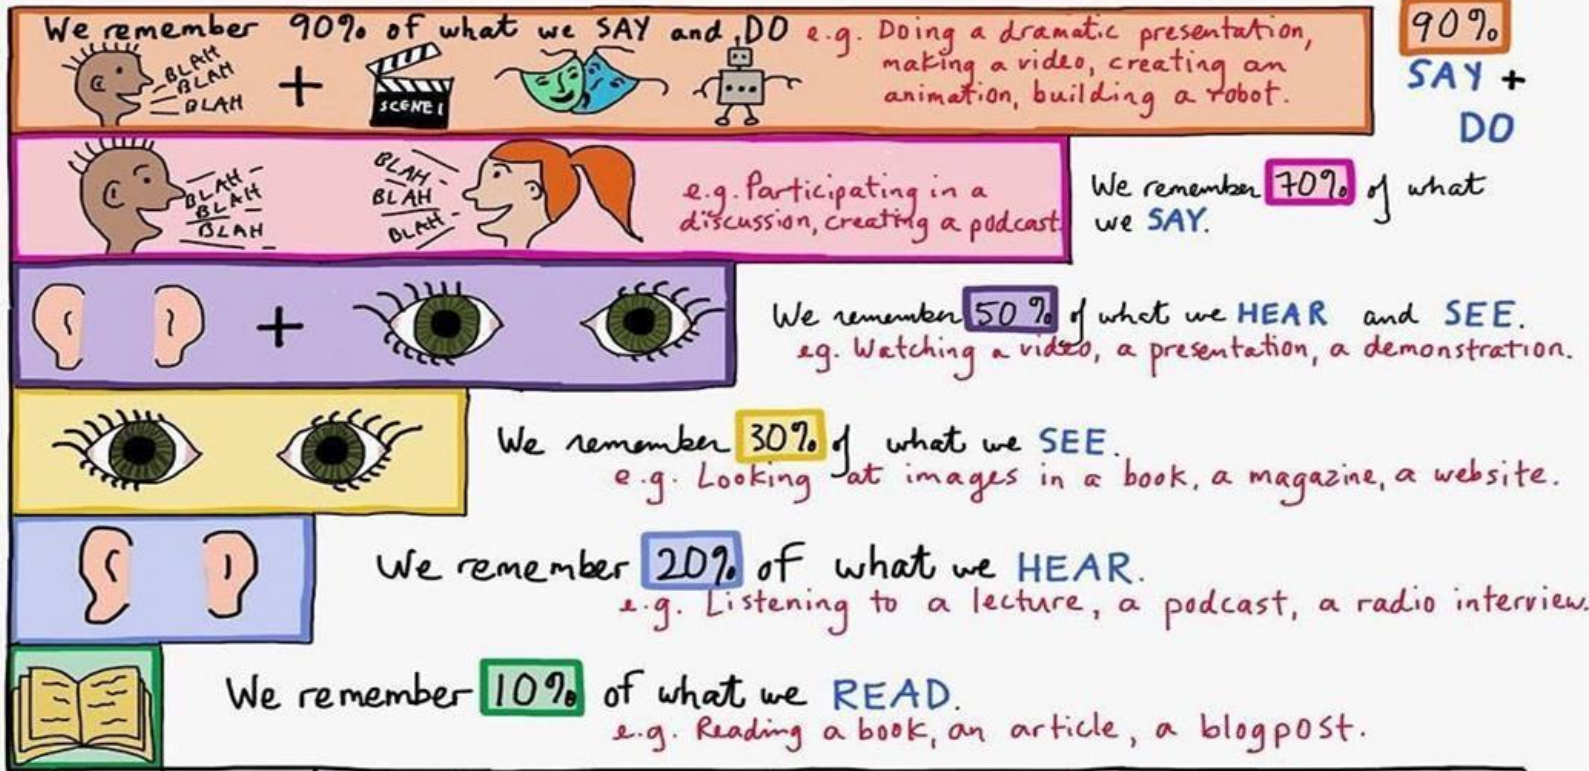 We remember 90% of what we SAY and DO e.g. Doing a dramatic presentation,
making a video, creating an
animation, building a robot.
BLAH
BLAH
BLAH
+
SCENE 1
90%
SAY +
DO
BLAH
BLAH
BLAH
BLAH
BLAH
BLAH
e.g. Participating in a
discussion, creating a podcast
We remember 70% of what
we SAY.
+
We remember 50% of what we HEAR and SEE.
eg. Watching a video, a presentation, a demonstration.
We remember 30% of what we SEE.
e.g. Looking at images in a book, a magazine, a website.
We remember 20% of what we HEAR.
e.g. Listening to a lecture, a podcast, a radio interview.
We remember 10% of what we READ.
e.g. Reading a book, an article, a blogpost.